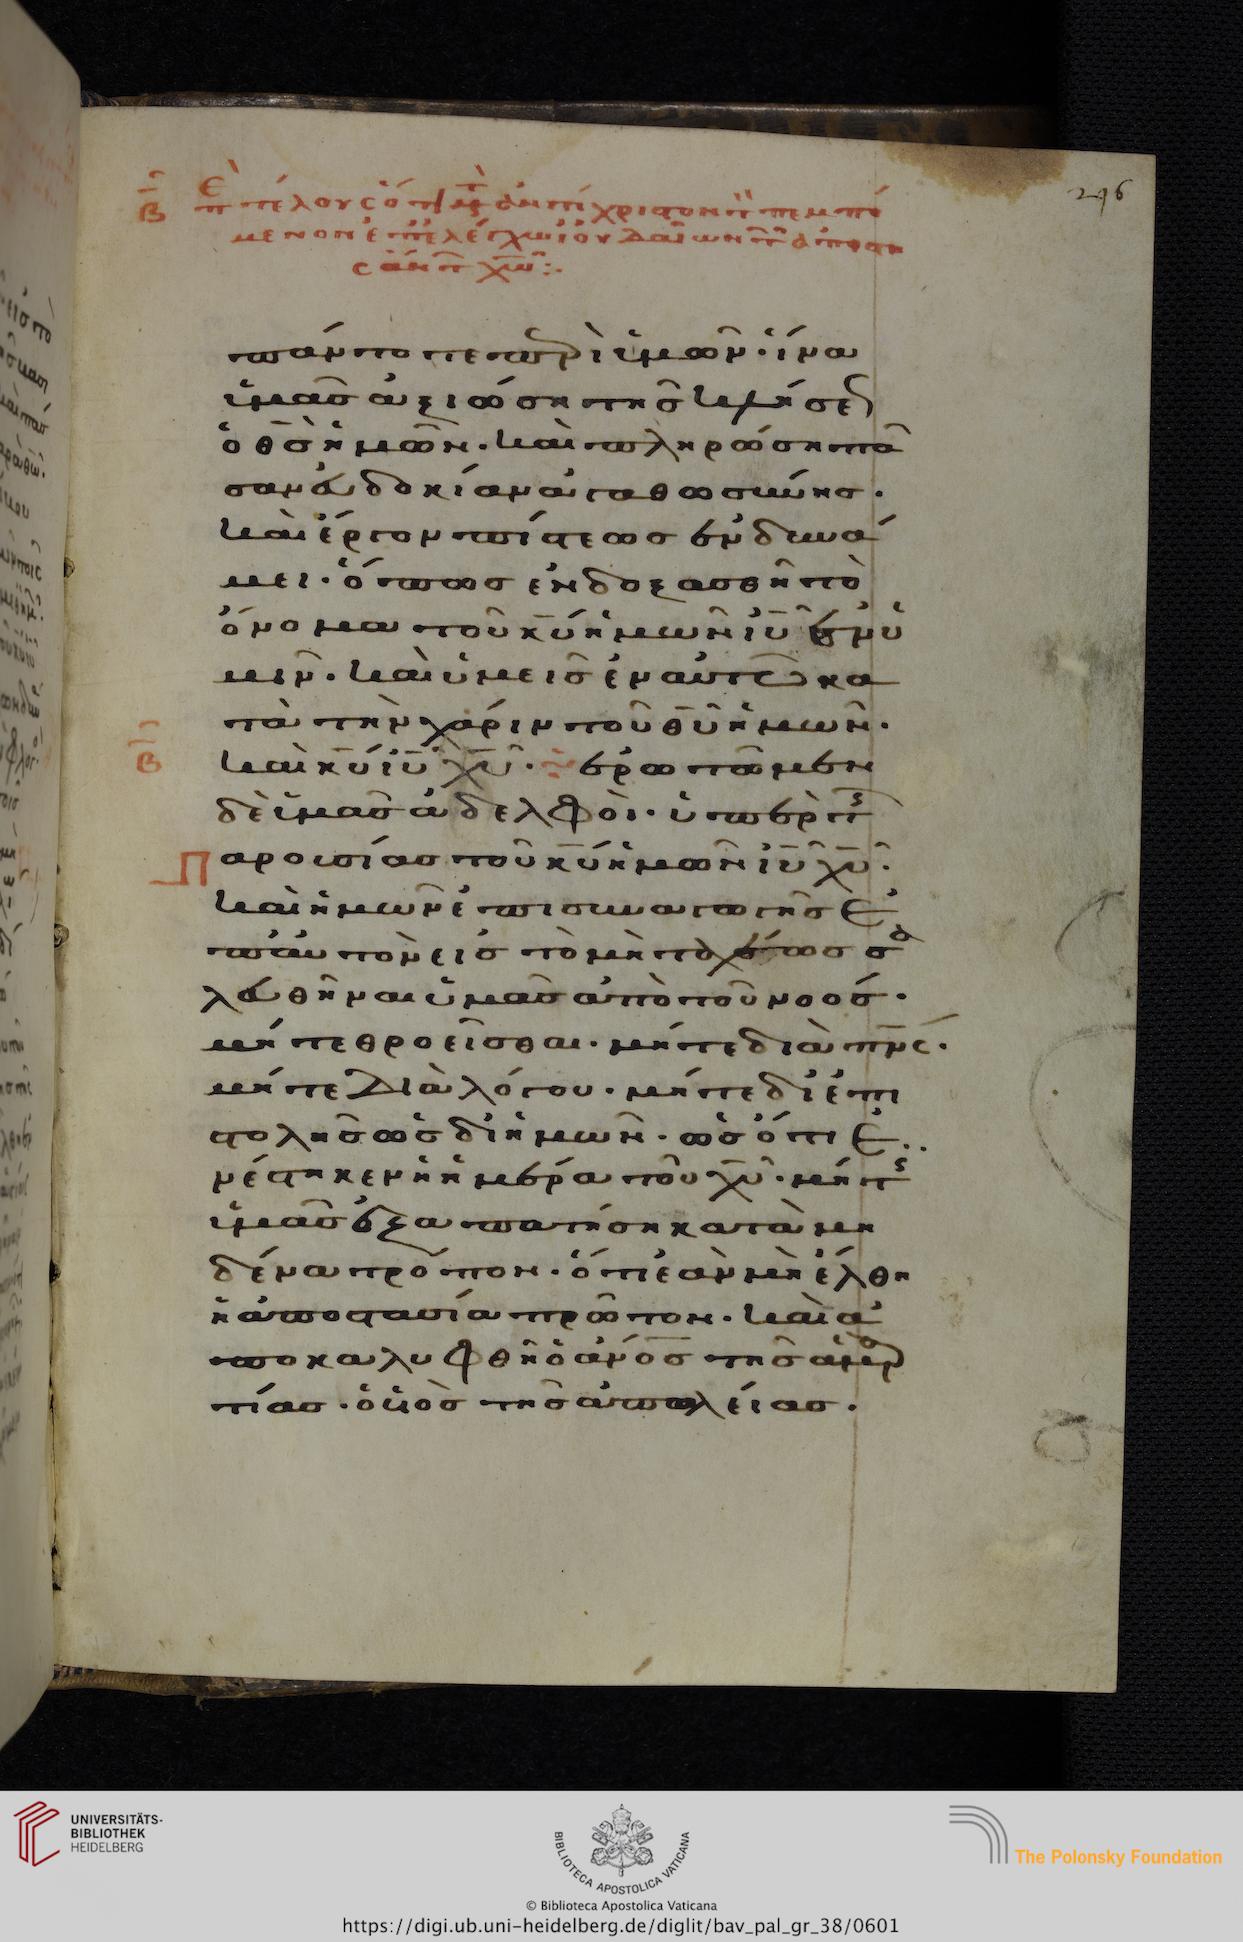 296
β̅ Ἐπ τέλους
πάντοτε περὶ ὑμῶν· ἵνα
ὑμᾶς ἀξιώση τῆς κλήσε
ὁ θ̅ς̅ ἡμῶν· καὶ πληρώση πᾶ
σαν εὐδοκίαν ἀγαθωσύνης·
καὶ ἔργον πίστεως ἐν δυνά
μει· ὅπως ἐνδοξασθῆ τὸ
ὄνομα τοῦ κ̅υ̅ ἡμῶν ι̅υ̅ ἐν ὑ
μῖν· καὶ ὑμεῖς ἐν αὐτῶ κα
τὰ τὴν χάριν τοῦ θ̅υ̅ ἡμῶν·
β̅ καὶ κ̅υ̅ ι̅υ̅ χ̅υ̅· ἐρωτῶμεν
δὲ ὑμᾶς ἀδελφοὶ· ὑπὲρ τῆς
Παρουσίας τοῦ κ̅υ̅ ἡμῶν ι̅υ̅ χ̅υ̅·
καὶ ἡμῶν ἐπισυναγωγῆς ἐ
π' αὐτὸν εἰς τὸ μὴ ταχέως σα
λευθῆναι ὑμᾶς ἀπὸ τοῦ νοός·
μήτε θροεῖσθαι· μήτε διὰ π̅ν̅ς̅·
μήτε διὰ λόγου· μήτε δι' ἐπι
στολῆς ὡς δι' ἡμῶν· ὡς ὅτι ἐ
νέστηκεν ἡ ἡμέρα τοῦ χ̅υ̅· μή τις
ὑμᾶς ἐξαπατήση κατὰ μη
δένα τρόπον· ὅτι ἐὰν μὴ ἔλθη
ἡ ἀποστασία πρῶτον· καὶ ἀ
ποκαλυφθῆ ὁ ἄν̅ο̅ς̅ τῆς ἁμαρ
τίας· ὁ υἱὸς τῆς ἀπωλείας·
UNIVERSITÄTS-
BIBLIOTHEK
HEIDELBERG
BIBLIOTECA APOSTOLICA VATICANA
The Polonsky Foundation
© Biblioteca Apostolica Vaticana
https://digi.ub.uni-heidelberg.de/diglit/bav_pal_gr_38/0601